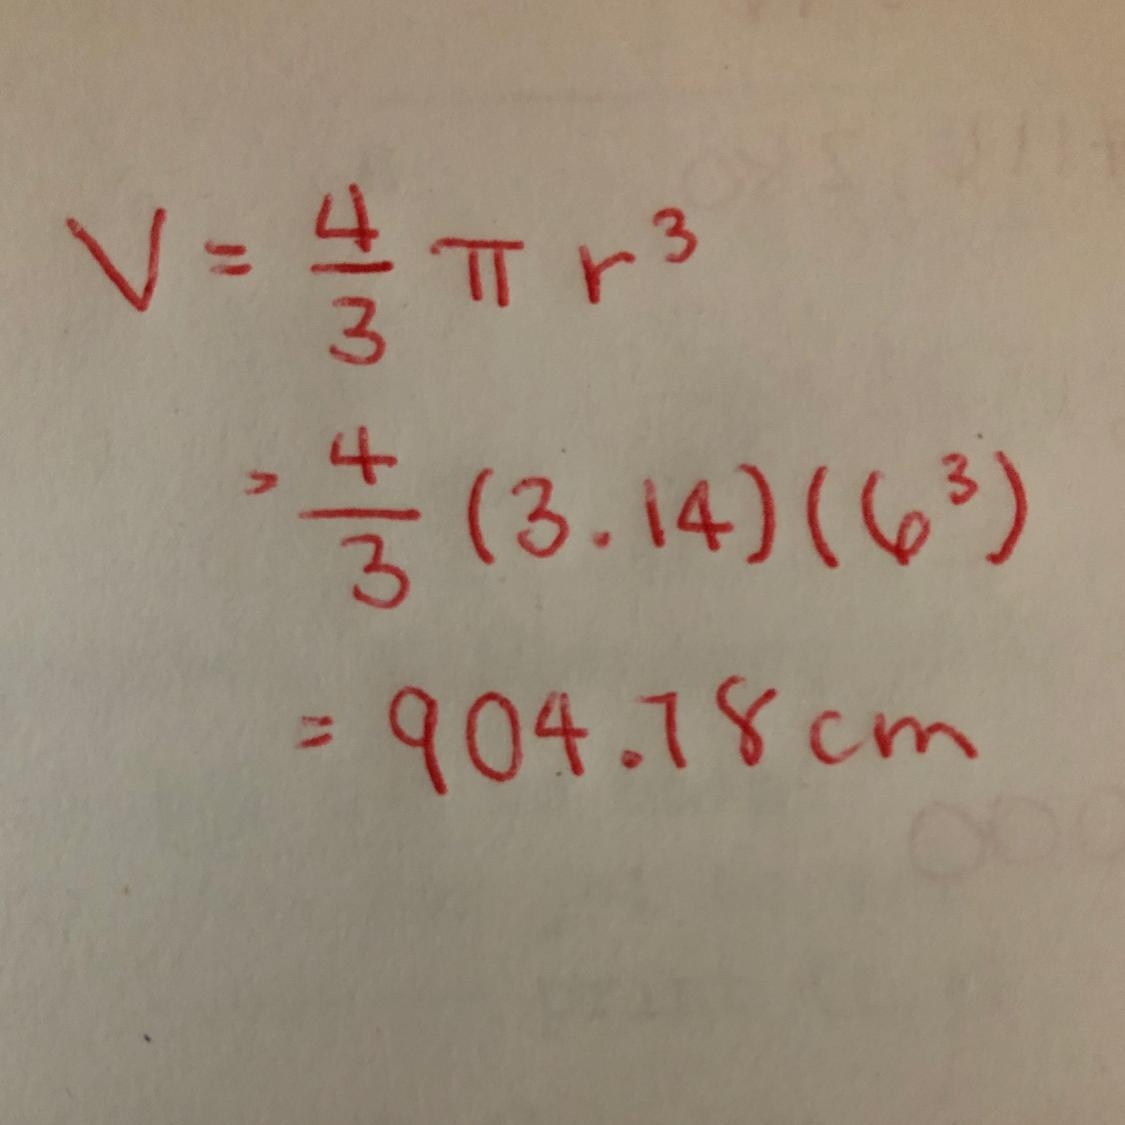 V = 4/3 π r³
= 4/3 (3.14)(6³)
= 904.78 cm